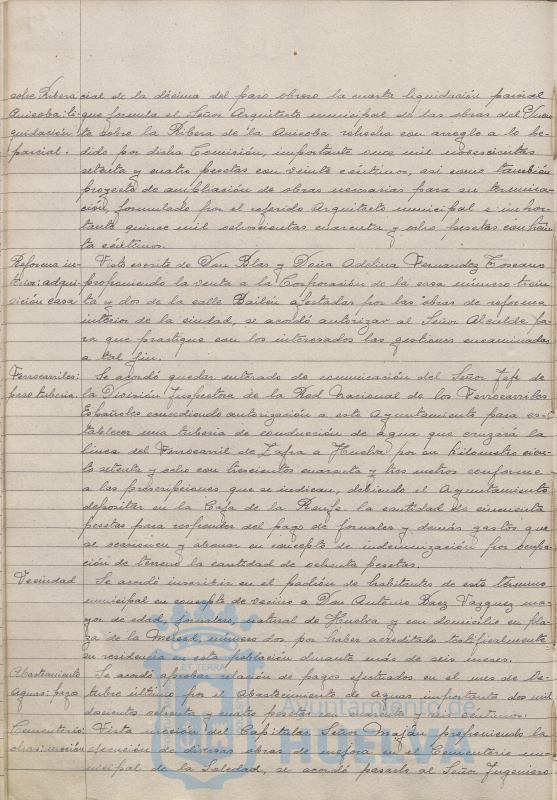 sobre Ribera cial de la décima del paro obrero la cuarta liquidación parcial
Anicoba: li- que formula el Señor Arquitecto municipal de las obras del
quidación ta sobre la Ribera de la Anicoba rehecha con arreglo a lo pe-
parcial. dido por dicha Comisión, importante once mil novecientas
setenta y cuatro pesetas con veinte céntimos, así como también
proyecto de ampliación de obras necesarias para su termina-
ción, formulado por el referido Arquitecto municipal e impor-
tante quince mil ochocientas cuarenta y ocho pesetas con trein
ta céntimos.
Reforma in- Visto escrito de Don Blas y Doña Adelina Fernandez Toscano
terior: adqui- proponiendo la venta a la Corporación de la casa número trein
sición casa ta y dos de la calle Bailén afectadas por las obras de reforma
interior de la ciudad, se acordó autorizar al Señor Alcalde pa-
ra que practique con los interesados las gestiones encaminadas
a tal fin.
Ferrocarriles: Se acordó quedar enterado de comunicación del Señor Jefe de
paso tuberia. la División Inspectora de la Red Nacional de los Ferrocarriles
Españoles concediendo autorización a este Ayuntamiento para es-
tablecer una tuberia de conducción de agua que cruzará la
linea del Ferrocarril de Zafra a Huelva por su kilometro cien-
to setenta y ocho con trescientos cuarenta y tres metros conforme
a las prescripciones que se indican, debiendo el Ayuntamiento
depositar en la Caja de la Renfe la cantidad de cincuenta
pesetas para responder del pago de jornales y demás gastos que
se ocasionen y abonar en concepto de indemnización por ocupa-
ción de terreno la cantidad de ochenta pesetas.
Vecindad Se acordó inscribir en el padrón de habitantes de este término
municipal en concepto de vecino a Don Antonio Baez Vazquez ma-
yor de edad, jornalero, natural de Huelva y con domicilio en pla-
za de la Merced, número dos por haber acreditado testificalmente
su residencia en esta población durante más de seis meses.
Abastecimiento Se acordó aprobar relación de pagos efectuados en el mes de Oc-
Aguas: pagos tubre último por el abastecimiento de Aguas importante dos mil
doscientas ochenta y cuatro pesetas con cuarenta y seis céntimos.
Cementerio: Vista moción del Capitular Señor Maján proponiendo la
obras: moción ejecución de diversas obras de mejora en el Cementerio mu-
nicipal de la Soledad, se acordó pasarlo al Señor Ingeniero
ET TERRA
Ayuntamiento de
HUELVA